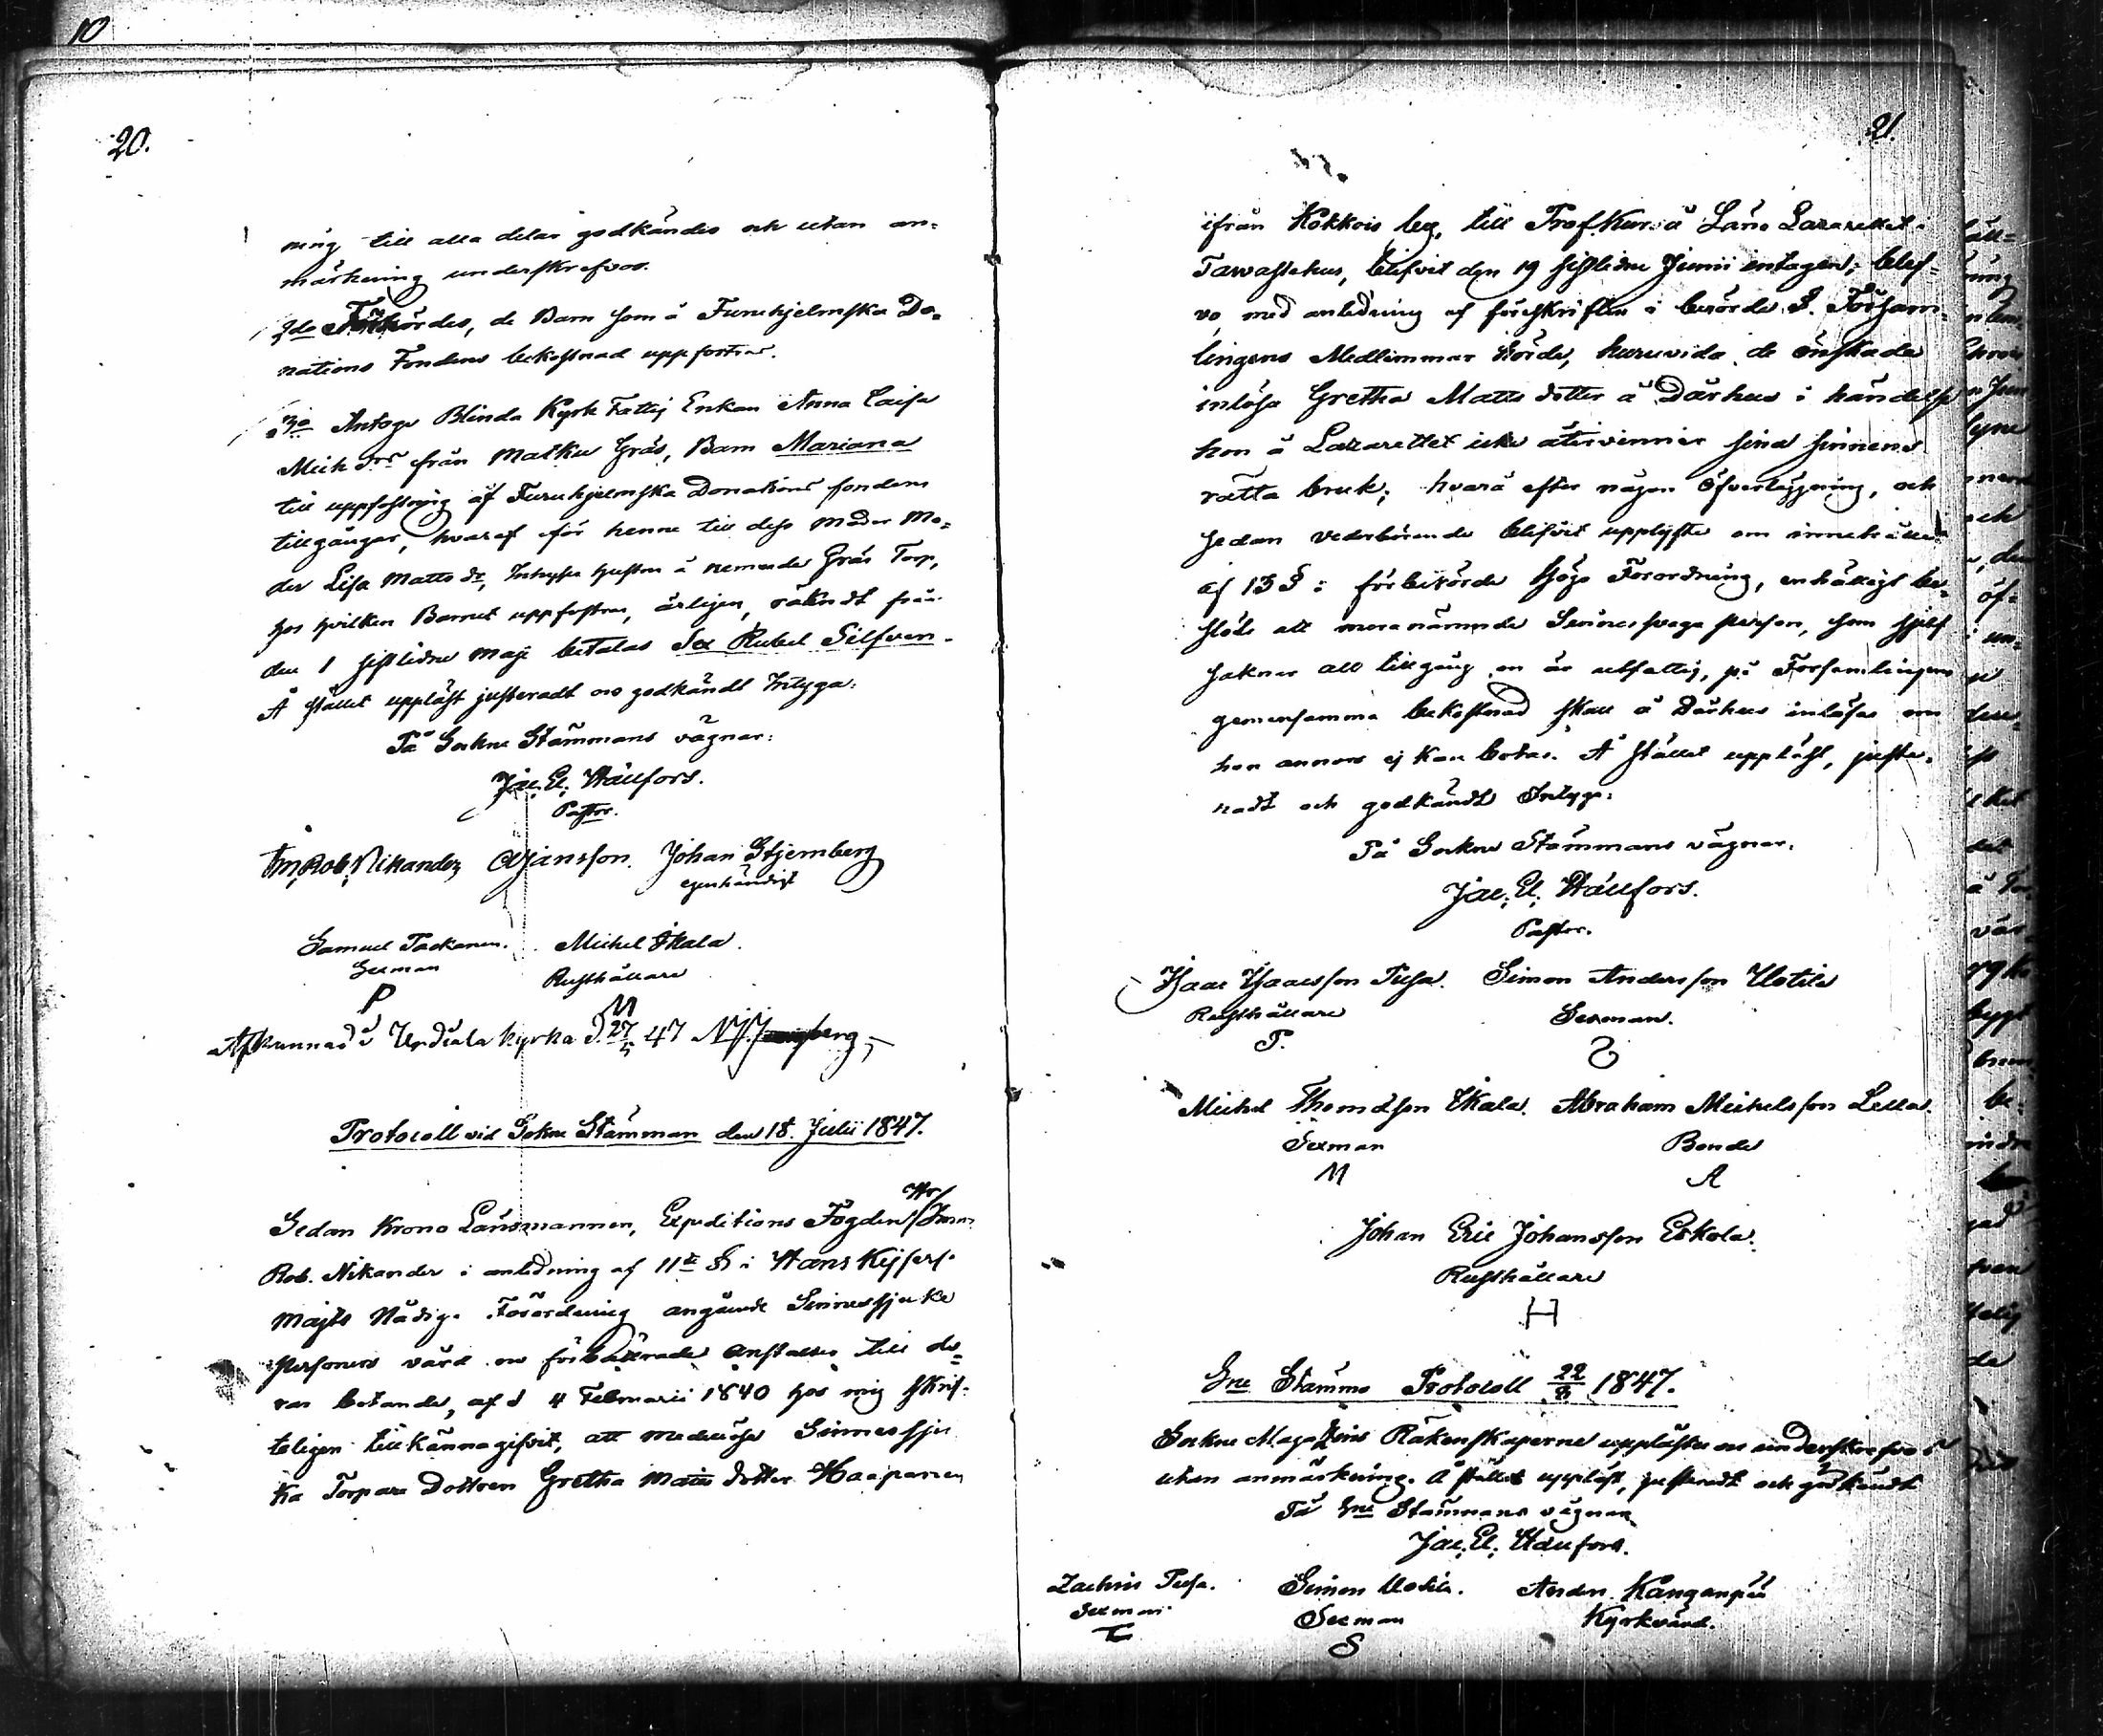 10
20.
ning till alla delar godkändes och utan an=
märkning underskrefvos.
2do Förhördes, de Barn som å Furuhjelmska Do=
nations Fondens bekostnad uppfostras.
3o Antogs Blinda Kyrk Fattig Enkan Anna Caisa
Mich dors från Matku Gräs, Barn Mariana
till uppfostring af Furuhjelmska Donations fondens
tillgångar, hvaraf för henne till dess Moder Mo=
der Lisa Matts dr, Inhyses hustru å nemnde Gräs Torp,
hos hvilken Barnet uppfostras, årligen, räknadt från
den 1 sistledne Maji betalas Sex Rubel Silfver.
Å stället uppläst justeradt och godkändt Intyga:
På Sockne Stämmans vägnar:
Jac. El. Hällfors.
Pastor.
Im. Rob. Nikander, Johan Stjernberg
egenhändigt
Samuel Michel Ikala.
Sexman Rusthållare
P M
Afkunnad i Urdiala kyrka d. 27 47
Protocoll vid Sokne Stämman den 18. Julii 1847.
Sedan Krono Länsmannen, Expeditions Fogden Hr Imm.
Rob. Nikander i anledning af 11te § i Hans Kejserl.
Majts Nådiga Förordning angående Sinnessjuke
Personers vård och förbättrade anstalter till de=
ras botande, af d 4 Februarii 1840 hos mig skrif=
teligen tillkännagifvit, att medellösa Sinnessju
ka Torpare Dottren Gretha Matts dotter Haapanen
21.
ifrån Kokkois by, till Prof Kur å Läns Lazarettet i
Tawastehus, blifvit den 19 sistledne Junii intagen; blef=
vo med anledning af föreskriften i berörde §. Försam=
lingens Medlemmar hörde, huruvida de önskade
inlösa Gretha Matts dotter å Dårhus i händelse
hon å Lazarettet icke återvinner sina sinnens
rätta bruk; hvarå efter någon öfverläggning, och
sedan vederbörande blifvit upplyste om innehållet
af 13 § i förberörde Höga Förordning, enhälligt be=
slöts att meranämnde Sinnessvaga person, som sjelf
saknar all tillgång och är utfattig, på Församlingens
gemensamma bekostnad skall å Dårhus inlösas om
hon annors ej kan botas. Å stället uppläst, juste=
radt och godkändt Intyga:
På Sockne Stämmans vägnar.
Jac. El. Hällfors.
Pastor.
Isaac Isaacsson Tusa. Simon Andersson Uotila
Rusthållare Sexman.
T.
Michel Thomasson Ikala. Abraham Michelsson Lella.
Sexman Bonde
M A
Johan Eric Johansson Eskola.
Rusthållare
H
Sne Stämmo Protocoll 22/8 1847.
Sockne Magazins Räkenskaperne upplästes och underskrefvos
utan anmärkning. Å stället uppläst, justeradt och godkändt
På Sne Stämmans vägnar
Jac. El. Hällfors.
Zachris Tusa. Simon Uotila. Anders Kanganpää
Sexman Sexman Kyrkvärd.
S